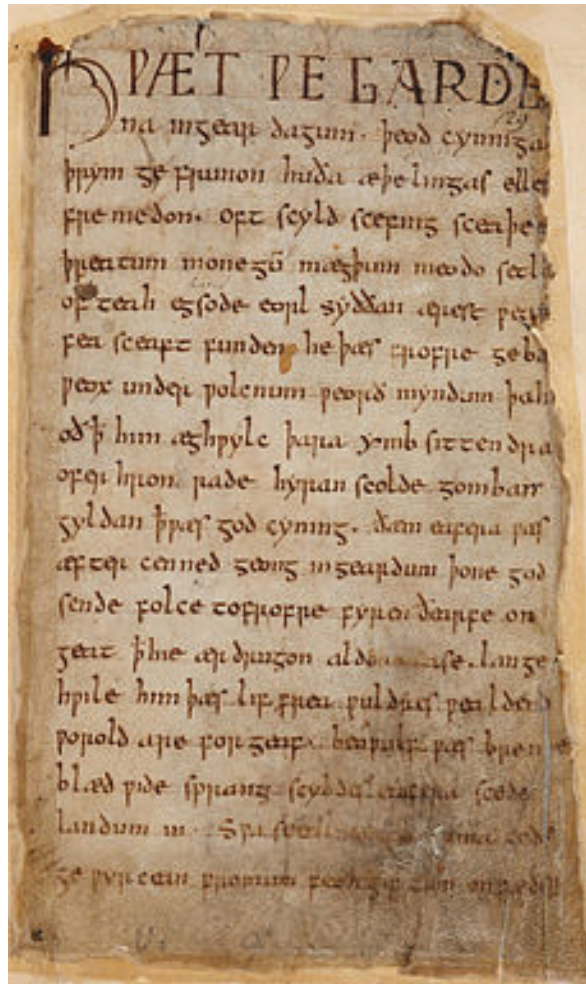 HǷÆT ǷE GARDE
129
na ingear dagum. þeod cyninga
þrym ge frunon huða æþelingas elle
fre medon. oft scyld scefing sceaþe
þreatum monegū mægþum meodo setla
of teah egsode eorl syððan ærest ƿear
fea sceaft funden he þæs frofre geba
ƿeox under ƿolcnum ƿeorð myndum þah
oð ꝥ him æghƿylc þara ymb sittendra
ofer hron rade hyran scolde gomban
gyldan ꝥ ƿæs god cyning. ðæm eafera ƿæs
æfter cenned geong ingeardum þone god
sende folce tofrofre fyren ðearfe on
geat ꝥ hie ær drugon aldor ase. lange
hƿile him þæs lif frea ƿuldres ƿealdend
ƿorold are for geaf. beoƿulf ƿæs breme
blæd ƿide sprang scyldes eafera scede
landum in. Sƿa sceal
ge ƿyrcean fromum feoh giftum on fæder